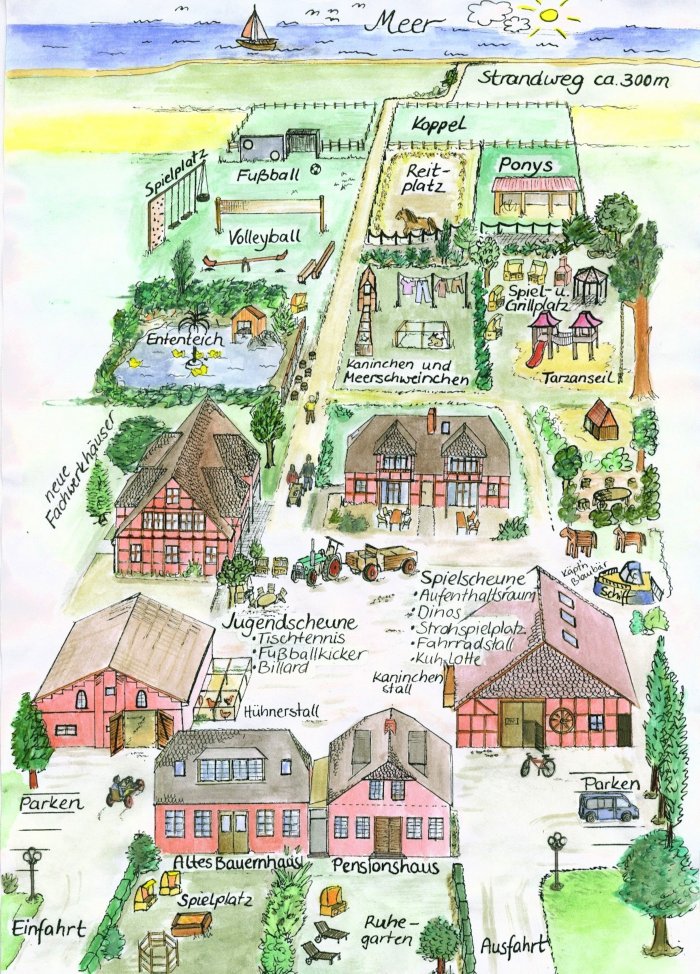 Meer
Strandweg ca. 300m
Koppel
Spielplatz
Fußball
Reit-
platz
Ponys
Volleyball
Spiel- u.
Grillplatz
Ententeich
Kaninchen und
Meerschweinchen
Tarzanseil
neue
Fachwerkhäuser
Käpt'n
Blaubär
Schiff
Spielscheune
• Aufenthaltsraum
• Dinos
• Strohspielplatz
• Fahrradstall
• Kuh Lotte
Jugendscheune
• Tischtennis
• Fußballkicker
• Billard
Kaninchen
stall
Hühnerstall
Parken
Parken
Altes Bauernhaus
Pensionshaus
Spielplatz
Ruhe-
garten
Einfahrt
Ausfahrt